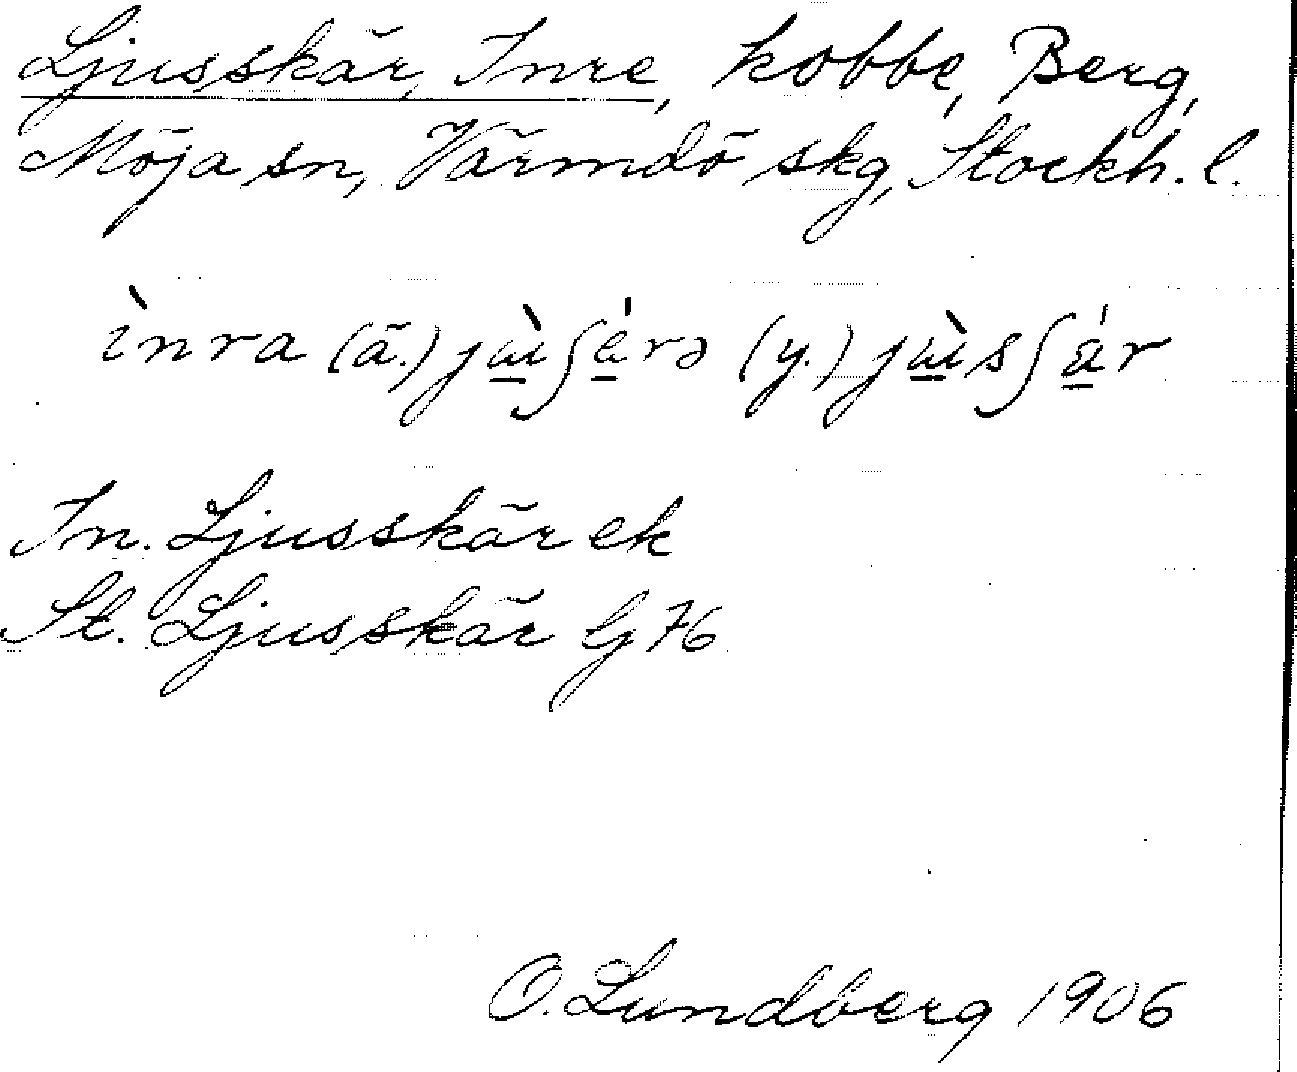 Ljusskär, Inre, kobbe, Berg,
Möja sn, Värmdö skg, Stockh. l.
ìnra (ä.) jɯ̲̀ʃá̲rə (y.) jɯ̲̀sʃá̲r
In. Ljusskär ek
St. Ljusskär Gj 76
O. Lundberg 1906